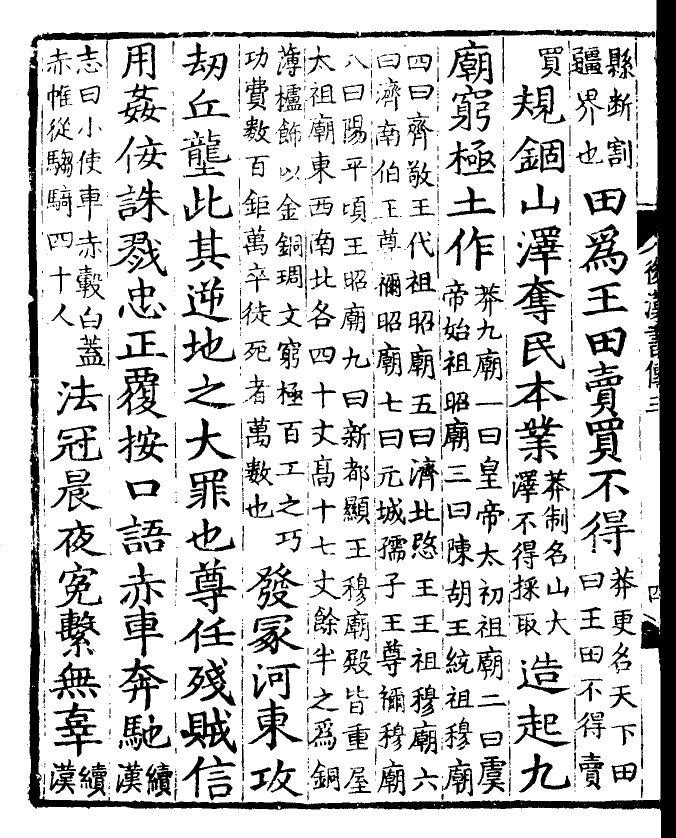 縣断割
疆界也
田爲王田賣買不得
莽更名天下田
曰王田不得賣
買
規錮山澤奪民本業
莽制名山大
澤不得採取
造起九
廟窮極土作
莽九廟一曰皇帝太初祖廟二曰虞
帝始祖昭廟三曰陳胡王統祖穆廟
四曰齊敬王代祖昭廟五曰濟北愍王王祖穆廟六
曰濟南伯王尊禰昭廟七曰元城孺子王尊禰穆廟
八曰陽平頃王昭廟九曰新都顯王穆廟殿皆重屋
太祖廟東西南北各四十丈高十七丈餘半之爲銅
薄櫨飾以金銅琱文窮極百工之巧
功費数百鉅萬卒徒死者萬数也
發冢河東攻
劫丘壟此其逆地之大罪也尊任殘賊信
用姦佞誅戮忠正覆按口語赤車奔馳
續
漢
志曰小使車赤轂白蓋
赤帷從騶騎四十人
法冠晨夜寃繫無辜
續
漢
後漢書傳三
四